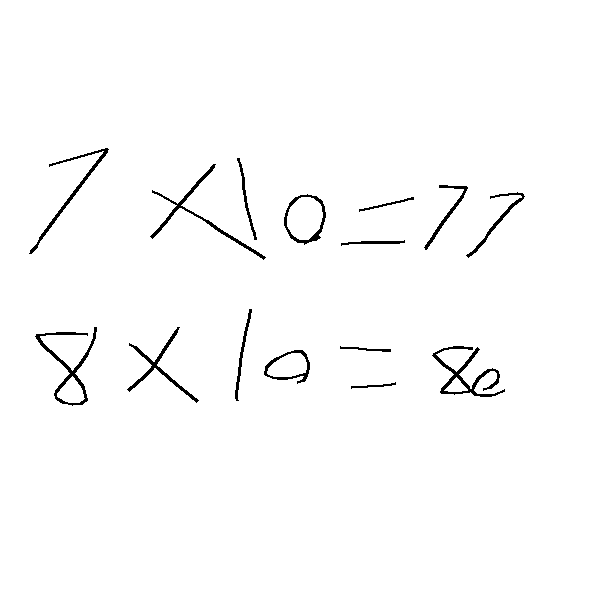 7 × 10 = 77
8 × 10 = 80